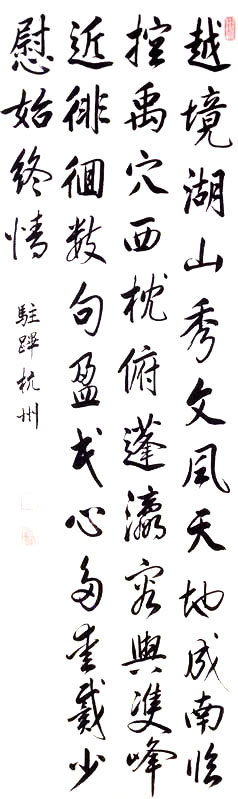 越境湖山秀文風天地成南臨
控禹穴西枕俯蓬瀛容與雙峰
近徘徊數句盈民心多愛戴少
慰始終情
駐蹕杭州